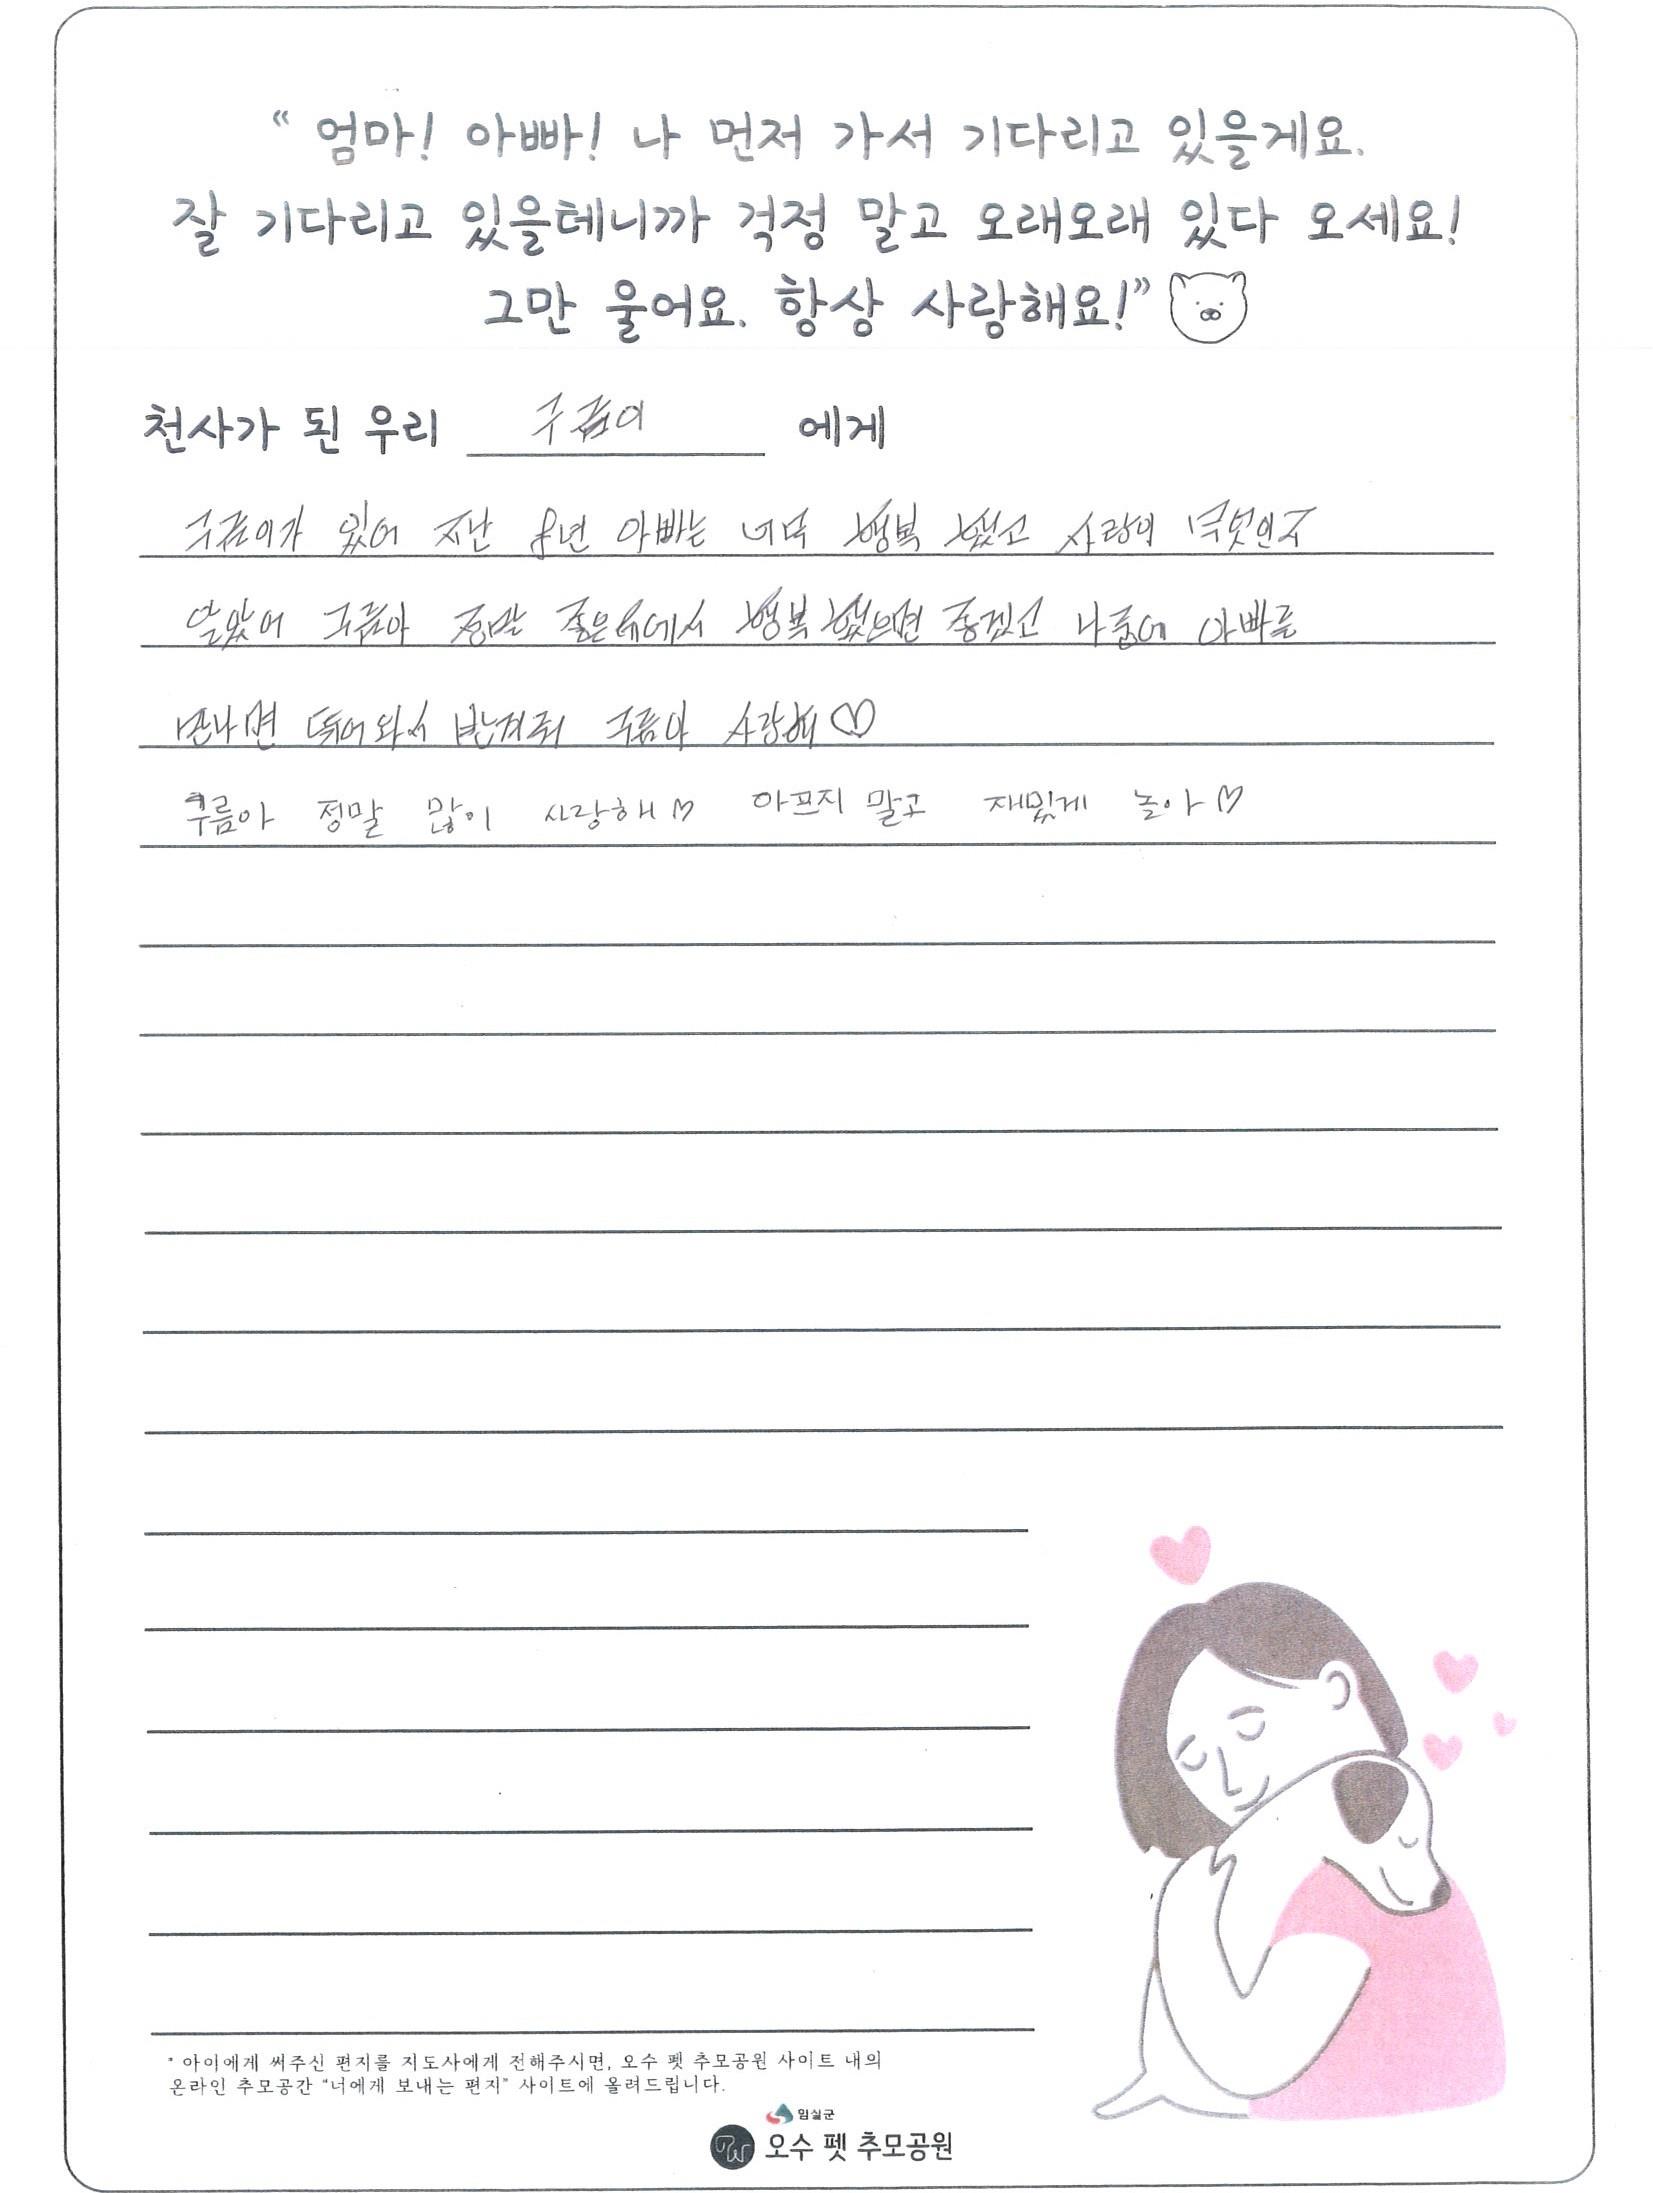 “ 엄마! 아빠! 나 먼저 가서 기다리고 있을게요.
잘 기다리고 있을테니까 걱정 말고 오래오래 있다 오세요!
그만 울어요. 항상 사랑해요!”
천사가 된 우리 구름이 에게
구름이가 있어 지난 8년 아빠는 너무 행복 했고 사랑이 무엇인지
알았어 구름아 정말 좋은 곳에서 행복 했으면 좋겠고 나중에 아빠를
만나면 뛰어와서 반겨줘 구름아 사랑해♡
구름아 정말 많이 사랑해♡ 아프지 말고 재밌게 놀아♡
* 아이에게 써주신 편지를 지도사에게 전해주시면, 오수 펫 추모공원 사이트 내의
온라인 추모공간 “너에게 보내는 편지” 사이트에 올려드립니다.
임실군
오수 펫 추모공원